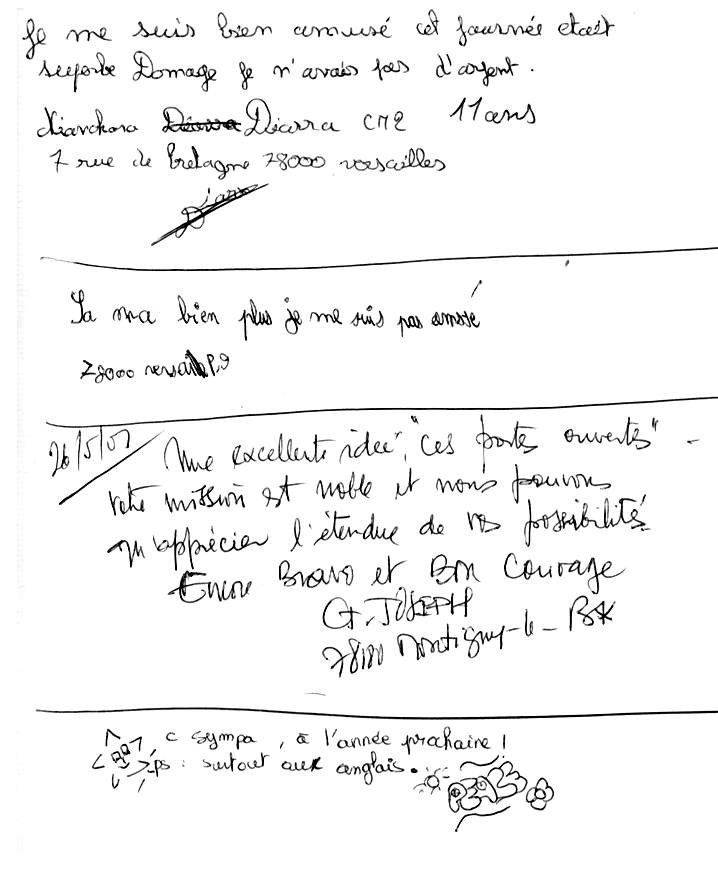 Je me suis bien amusé cet journée etait
superbe Domage Je n'avais pas d'argent.
Diarra Diarra CM2 11 ans
7 rue de bretagne 78000 versailles
Diarra
Sa ma bien plus je me suis pas amusé
78000
26/5/07 Une excellente idée, "ces portes ouvertes" -
votre mission est noble et nous pouvons
qu'apprécier l'étendue de vos possibilités.
Encore Bravo et Bon Courage
G. JOSEPH
78180 Montigny-le-BX
c sympa, à l'année prochaine!
ps: surtout aux anglais.